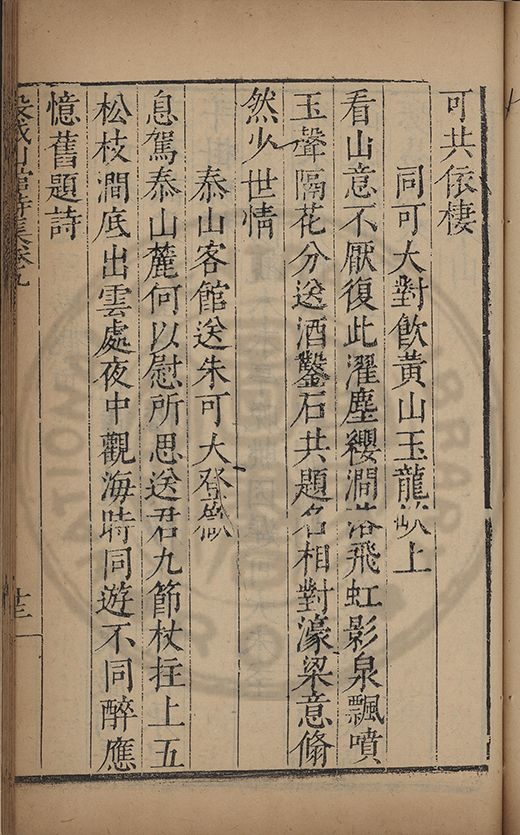 可共依棲
同可大對飲黃山玉龍㘭上
看山意不厭復此濯塵纓澗落飛虹影泉飄噴
玉聲隔花分送酒鑿石共題名相對濠梁意翛
然少世情
泰山客館送朱可大登嶽
息駕泰山麓何以慰所思送君九節杖拄上五
松枝澗底出雲處夜中觀海時同遊不同醉應
憶舊題詩
館詩集卷九
十三